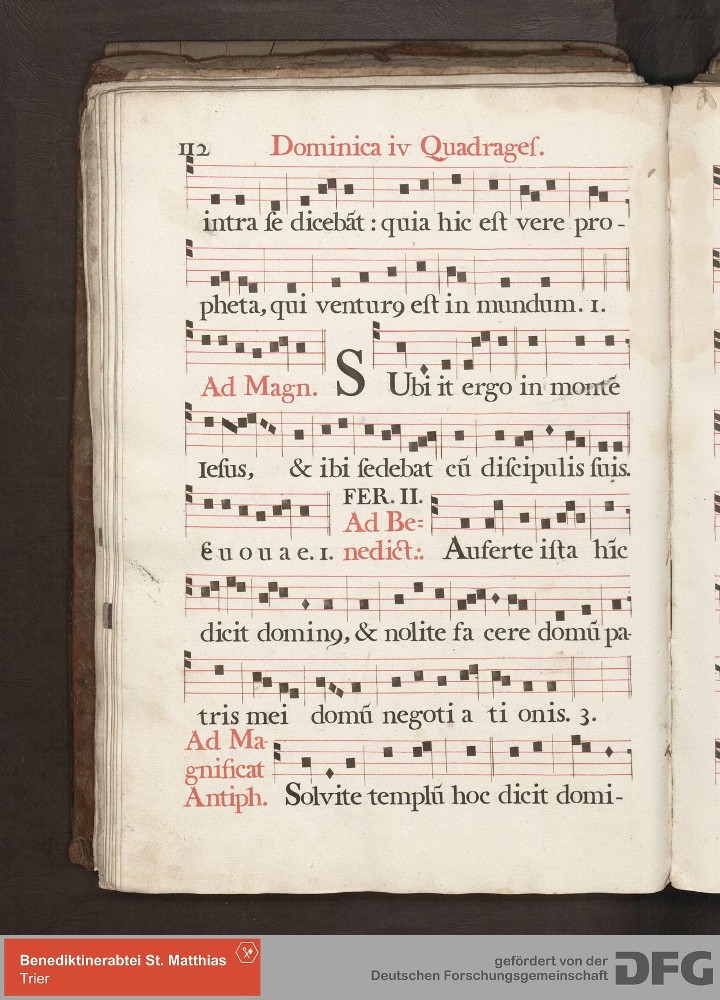 112 Dominica iv Quadrageſ.
intra ſe dicebãt : quia hic eſt vere pro-
pheta, qui venturꝯ eſt in mundum. 1.
Ad Magn. SUbi it ergo in montẽ
Ieſus, & ibi ſedebat cũ diſcipulis ſuis.
FER. II.
Ad Be=
e u o u a e. 1. nedict.: Auferte iſta hĩc
dicit dominꝯ, & nolite fa cere domũ pa-
tris mei domũ negoti a ti onis. 3.
Ad Ma-
gnificat
Antiph. Solvite templũ hoc dicit domi-
Benediktinerabtei St. Matthias
Trier
gefördert von der
Deutschen Forschungsgemeinschaft DFG